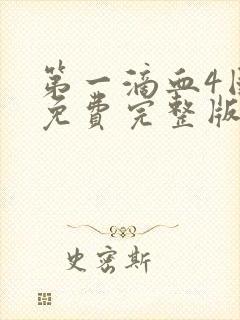 第一滴血4国
免费完整版
史密斯